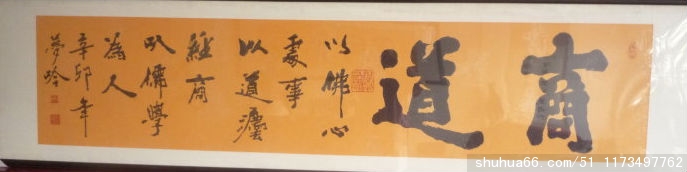 商道
以佛心
處事
以道澐
經商
以儒學
為人
辛卯年
夢吟
shuhua66.com/51_1173497762